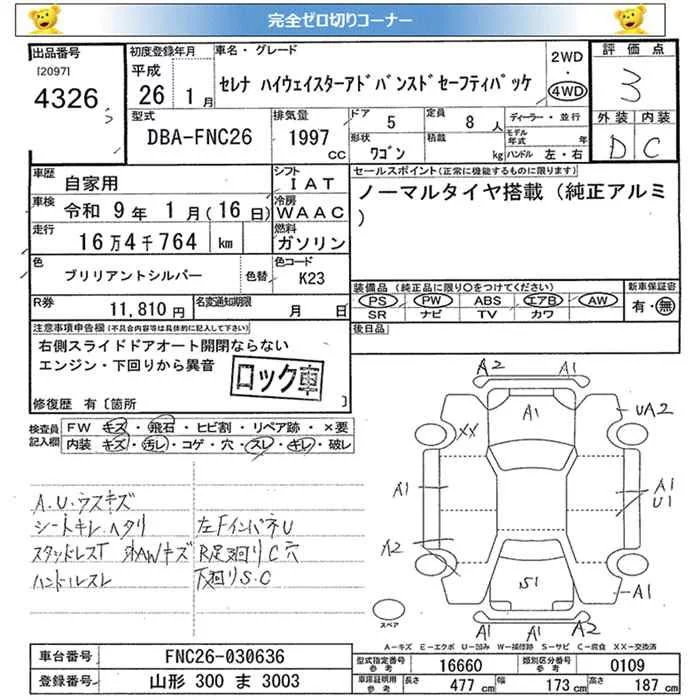 完全ゼロ切りコーナー
出品番号
[2097]
4326
初度登録年月
平成
26年 1月
車名・グレード
セレナ ハイウェイスターアドバンスドセーフティパッケ
2WD
・
4WD
評価点
3
型式
DBA-FNC26
排気量
1997
CC
ドア
5
定員
8人
形状
ワゴン
積載
kg
ディーラー・並行
モデル年式 年
ハンドル 左・右
外装 内装
D C
車歴
自家用
シフト
IAT
車検
令和 9年 1月(16日)
冷房
WAAC
走行
16万4千764 km
燃料
ガソリン
色
ブリリアントシルバー
色替
色コード
K23
R券
11,810円
名変通知期限
月 日
セールスポイント(正常に機能するものに限ります)
ノーマルタイヤ搭載(純正アルミ
)
装備品(純正品に限り〇をつけてください)
新車保証書
PS PW ABS エアB AW
有・無
SR ナビ TV カワ
後日品
注意事項申告欄(不具合内容等は具体的に記入して下さい)
右側スライドドアオート開閉ならない
エンジン・下回りから異音
ロック車
修復歴 有〔箇所 〕
検査員
記入欄
FW キズ・飛石・ヒビ割・リペア跡・×要
内装 キズ・汚レ・コゲ・穴・スレ・キレ・破レ
A.U.ウスキズ
シートキレ.ヘタリ
左FインパネU
スタッドレスT
AWキズ
R足廻りC穴
ハンドルスレ
下廻りS.C
A2
A1
A1
UA2
XX
A1
A1
U1
A2
S1
A1
A2
A1
A1
スペア
A-キズ E-エクボ U-凹み W-補修跡 S-サビ C-腐食 XX-交換済
車台番号
FNC26-030636
登録番号
山形 300 ま 3003
型式指定番号
参考
16660
類別区分番号
参考
0109
車庫証明用
参考
長さ
477 cm
幅
173 cm
高さ
187 cm